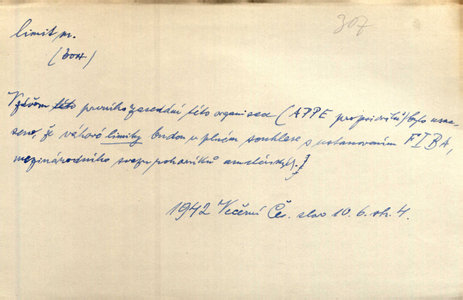 307
limit, m.
(box)
této prvního zasedání této organisace (APPE pro poidritů) bylo usne-
seno, že váhové limity budou v plném souhlase s ustanovením FIBA,
mezinárodního svazu rohovníků amatérských.]
1942 Večerní Čes. slovo 10. 6. str. 4.